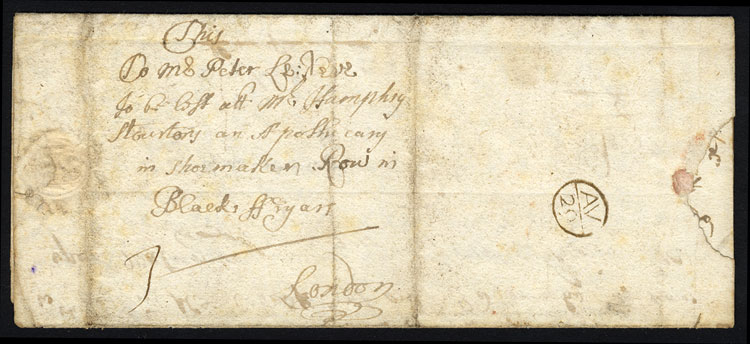 This
To Mr Peter Le:Neve
to be left att Mr Humphry
an Apothicary
in shoemaker Row in
Black ffryars
3
London
AV
29